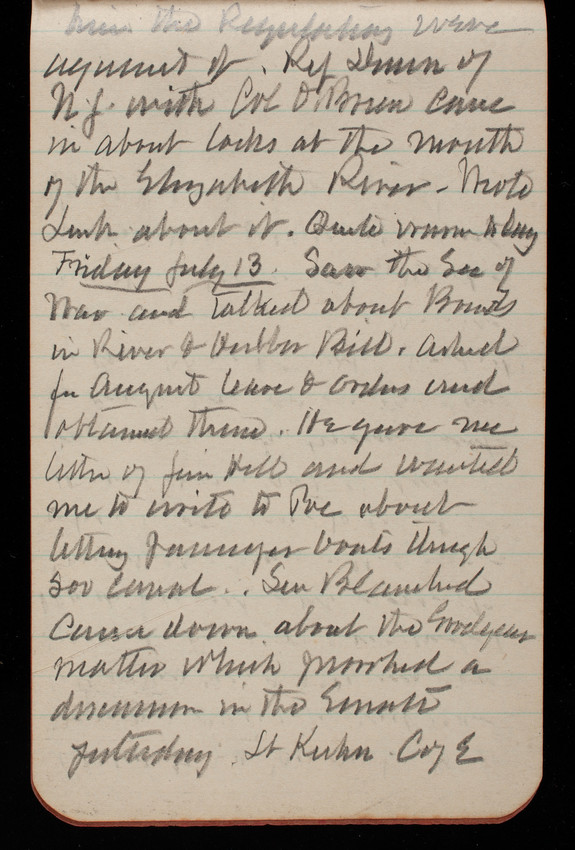 him the Regulations were
against it. Rep Dunn of
N.J. with Col O'Brien came
in about locks at the mouth
of the Elizabeth River. Wrote
about it. Quite warm today
Friday July 13. Saw the Sec of
War and talked about Boards
in River & Harbor Bill. Asked
for August leave & orders and
obtained them. He gave me
letter of Jim Hill and wanted
me to write to Poe about
letting passenger boats through
Soo Canal. Sen Blanchard
came down about the Goodyear
matter which provoked a
discussion in the Senate
yesterday. Lt Kuhn Co E